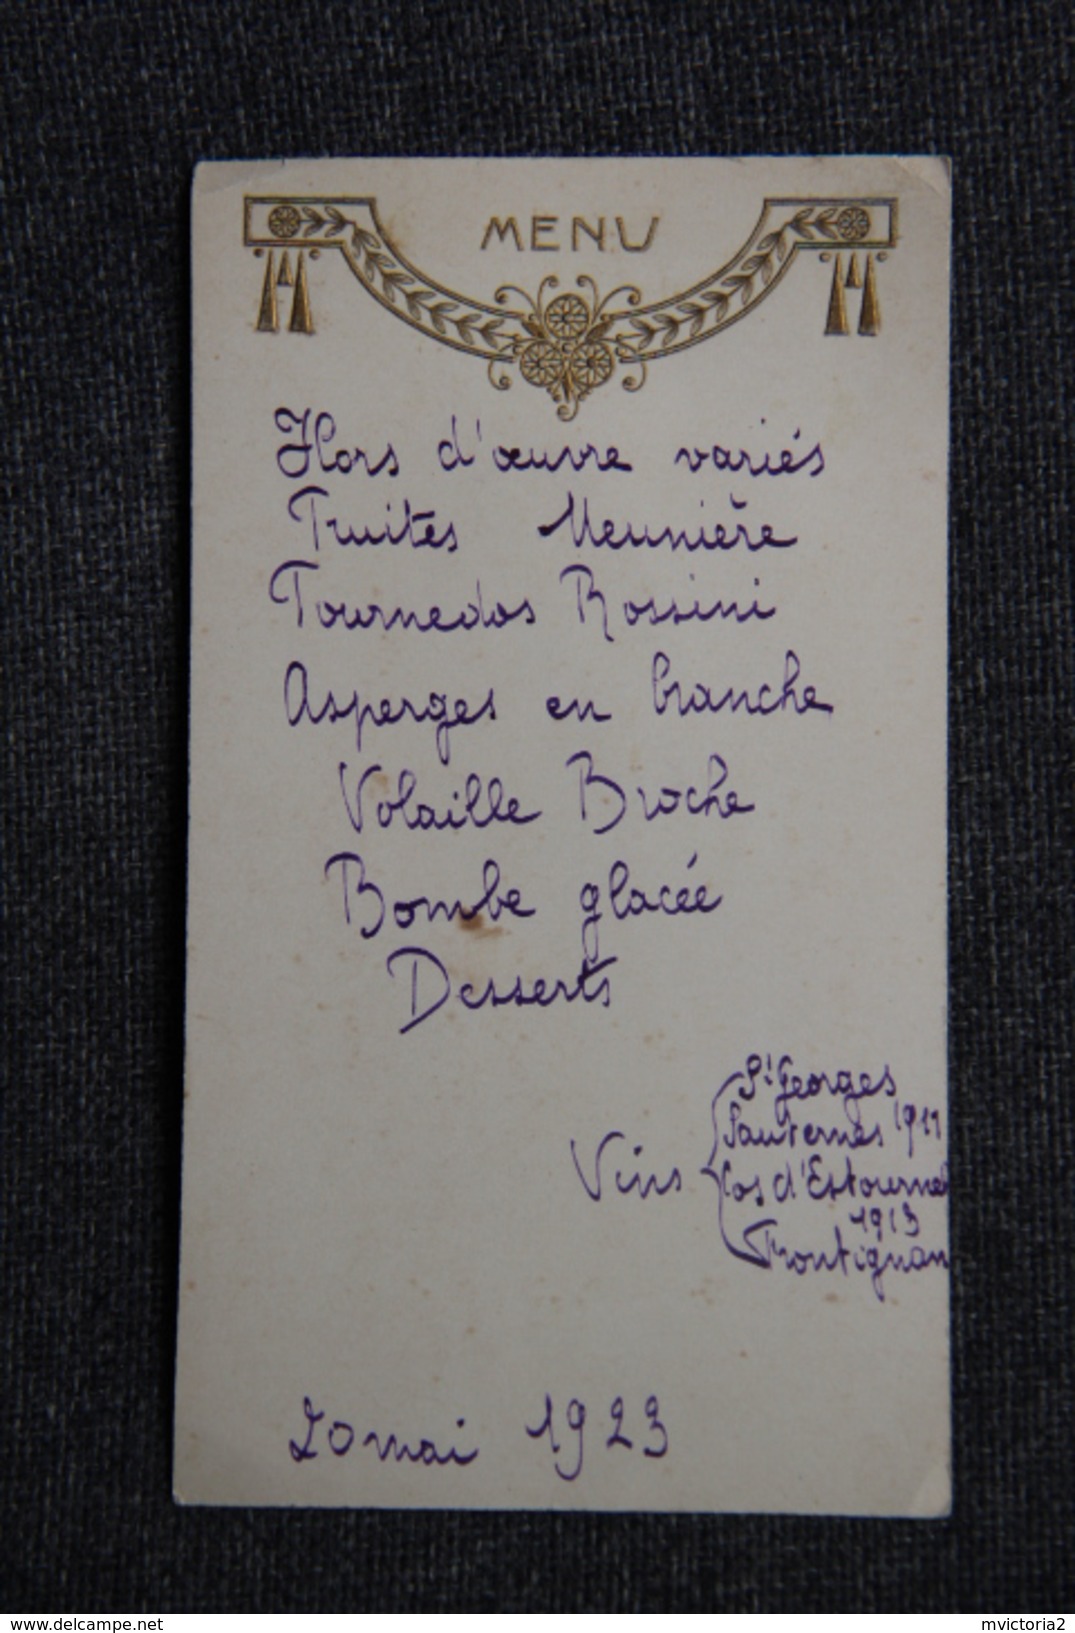 MENU
Hors d'œuvre variés
Truites Meunière
Tournedos Rossini
Asperges en branche
Volaille Broche
Bombe glacée
Desserts
St Georges
Sauternes 1911
Vins Cos d'Estournel
1913
Frontignan
20 mai 1923
delcampe.net
mvictoria2